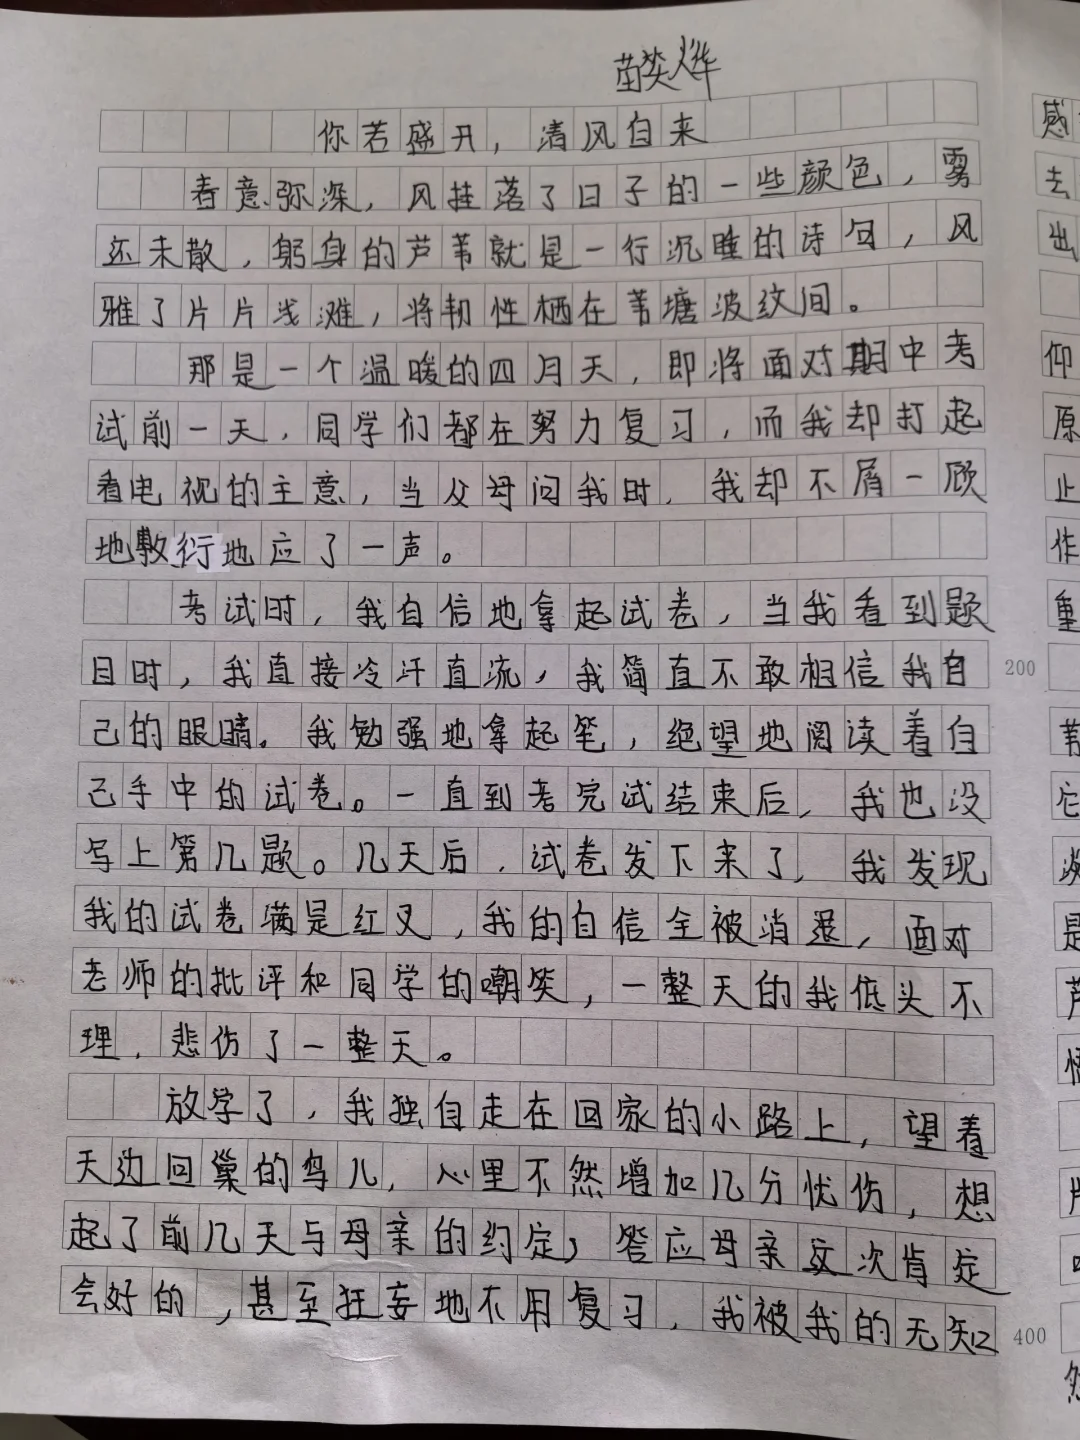 苗奕烨
你若盛开，清风自来
春意弥深，风挂落了日子的一些颜色，雾
还未散，躬身的芦苇就是一行沉睡的诗句，风
雅了片片浅滩，将韧性栖在苇塘波纹间。
那是一个温暖的四月天，即将面对期中考
试前一天，同学们都在努力复习，而我却打起
看电视的主意，当父母问我时，我却不屑一顾
地敷衍地应了一声。
考试时，我自信地拿起试卷，当我看到题
目时，我直接冷汗直流，我简直不敢相信我自
己的眼睛。我勉强地拿起笔，绝望地阅读着自
己手中的试卷。一直到考完试结束后，我也没
写上第几题。几天后，试卷发下来了，我发现
我的试卷满是红叉，我的自信全被消退，面对
老师的批评和同学的嘲笑，一整天的我低头不
理，悲伤了一整天。
放学了，我独自走在回家的小路上，望着
天边回巢的鸟儿，心里不然增加几分忧伤，想
起了前几天与母亲的约定，答应母亲这次肯定
会好的，甚至狂妄地不用复习，我被我的无知
200
400
感
去
出
仰
原
止
作
重
苇
它
是
芦